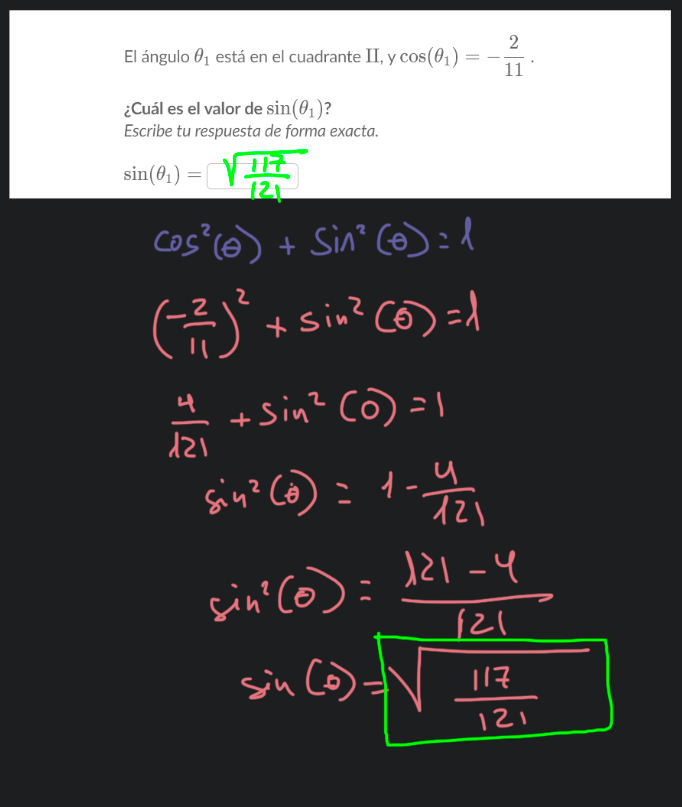 El ángulo θ₁ está en el cuadrante II, y cos(θ₁) = −2/11 .
¿Cuál es el valor de sin(θ₁)?
Escribe tu respuesta de forma exacta.
sin(θ₁) = √(117/121)
cos²(θ) + sin²(θ) = 1
(−2/11)² + sin²(θ) = 1
4/121 + sin²(θ) = 1
sin²(θ) = 1 − 4/121
sin²(θ) = (121 − 4)/121
sin(θ) = √(117/121)